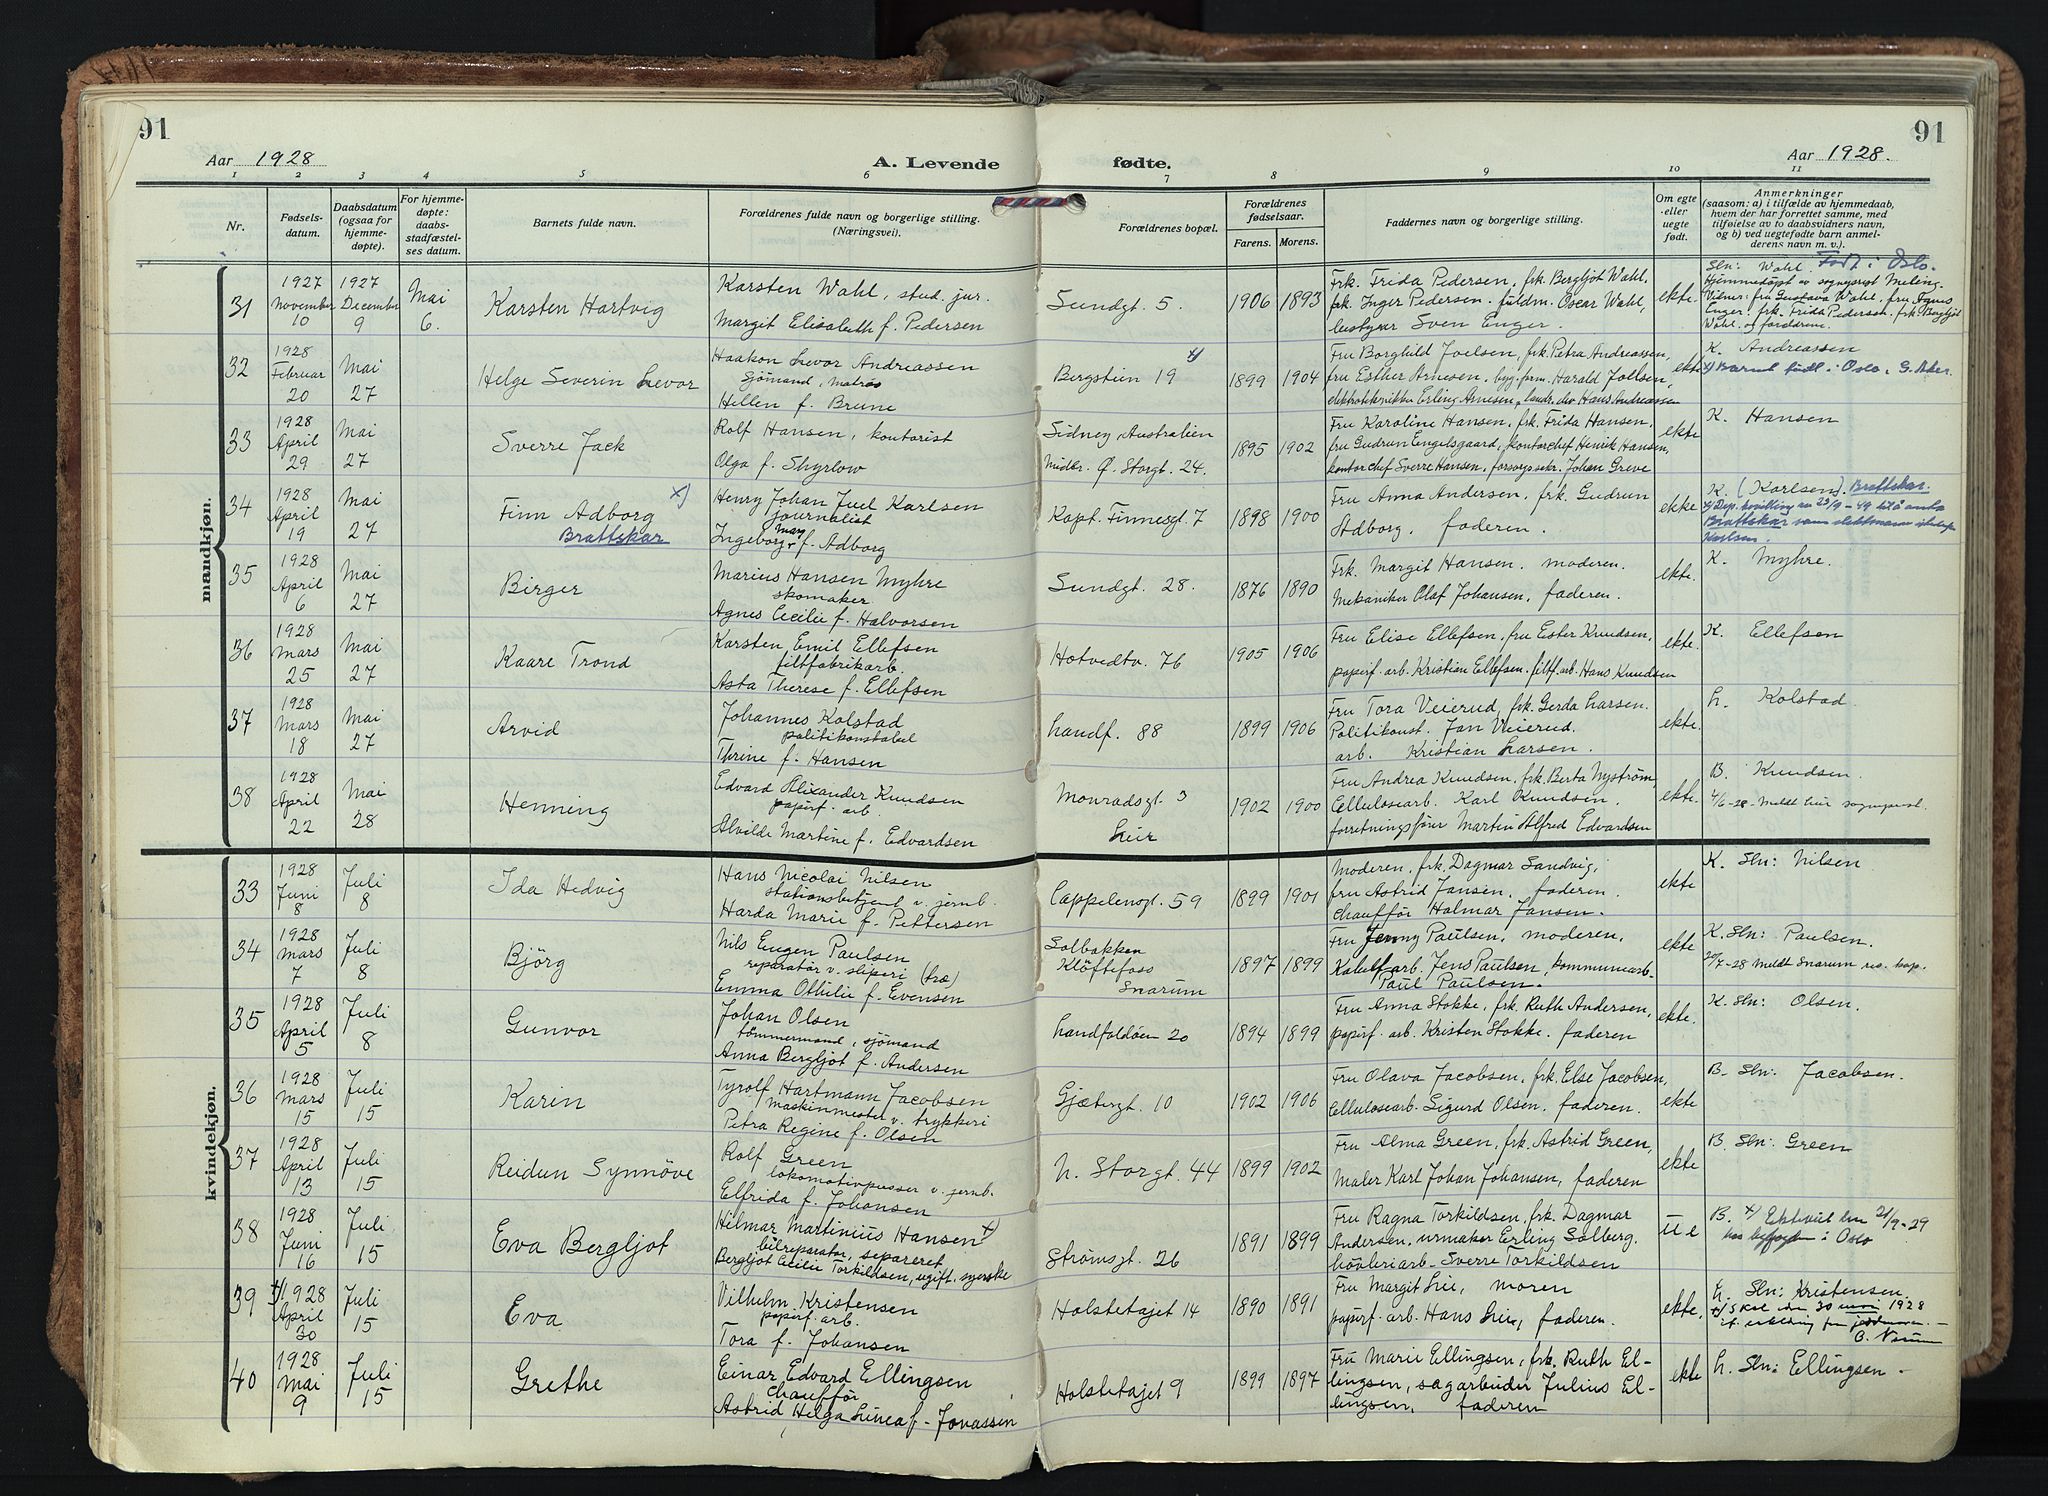 91
91
Aar 1928
A. Levende
fødte.
Aar 1928.
1 2 3 4 5 6 7 8 9 10 11
Nr.
Fødsels-
datum.
Daabsdatum
(ogsaa for
hjemme-
døpte).
For hjemme-
døpte:
daabs-
stadfæstel-
ses datum.
Barnets fulde navn.
Forældrenes fulde navn og borgerlige stilling.
(Næringsvei).
Forældrenes bopæl.
Forældrenes
fødselsaar.
Farens. Morens.
Faddernes navn og borgerlige stilling.
Om egte
eller
uegte
født.
Anmerkninger
(saasom: a) i tilfælde av hjemmedaab,
hvem der har forrettet samme, med
tilføielse av to daabsvidners navn,
og b) ved uegtefødte barn anmel-
derens navn m. v.).
mandkjøn.
31
1927
November
10
1927
December
9
Mai
6.
Karsten Hartvig
Karsten Wahl, stud. jur.
Margit Elisabeth f. Pedersen
Sundgt. 5.
1906 1893
Frk. Frida Pedersen, frk. Bergljot Wahl,
frk. Inger Pedersen, fuldm. Oscar Wahl,
bestyrer Sven Enger.
ekte.
Sln: Wahl. Født i Oslo.
Hjemmedöpt av sogneprest Meling.
Vidner: fru Gustava Wahl, fru Agnes
Enger, frk. Frida Pedersen, frk. Bergljot
Wahl og foreldrene.
32
1928
Februar
20
Mai
27
Helge Severin Levor
Haakon Levor Andreassen
Sjömand, matros
Hellen f. Brune
Bergstien 19 x)
1899 1904
Fru Borghild Joelsen, frk. Petra Andreassen,
fru Esther Arnesen, byg. form. Harald Joelsen,
elektrotekniker Erling Arnesen, Hans Andreassen
ekte
K. Andreassen
x) Barnet födt i Oslo, G. Aker.
33
1928
April
29
Mai
27
Sverre Jack
Rolf Hansen, kontorist
Olga f. Shyrlow
Sidney, Australien
midler. Ø. Storgt. 24.
1895 1902
Fru Karoline Hansen, frk. Frida Hansen,
fru Gudrun Engelsgaard, kontorchef Henrik Hansen,
kontorchef Sverre Hansen, forsorgssekr. Johan Greve
ekte
K. Hansen
34
1928
April
19
Mai
27
Finn Adborg x)
Brattskar
Henry Johan Juel Karlsen
journalist
Ingeborg Mar f. Adborg
Kapt. Finnesgt. 7
1898 1900
Fru Anna Andersen, frk. Gudrun
Adborg, faderen.
ekte
K. (Karlsen). Brattskar.
x) Dep. bevilling av 23/9-49 til å anta
Brattskar som slektsnavn istedenfor
Karlsen.
35
1928
April
6
Mai
27
Birger
Marius Hansen Myhre
skomaker
Agnes Cecilie f. Halvorsen
Sundgt. 28.
1876 1890
Frk. Margit Hansen, moderen.
Mekaniker Olaf Johansen, faderen.
ekte.
K. Myhre.
36
1928
Mars
25
Mai
27
Kaare Trond
Karsten Emil Ellefsen
filtfabrikarb.
Asta Therese f. Ellefsen
Hotvedtv. 76
1905 1906
Fru Elise Ellefsen, fru Ester Knudsen,
papirf. arb. Kristian Ellefsen, filtf. arb. Hans Knudsen
ekte.
K. Ellefsen
37
1928
Mars
18
Mai
27
Arvid
Johannes Kolstad
politikonstabel
Thrine f. Hansen
Landf. 88
1899 1906
Fru Tora Veierud, frk. Gerda Larsen.
Politikonst. Jan Veierud.
arb. Kristian Larsen.
ekte.
L. Kolstad
38
1928
April
22
Mai
28
Henning
Edvard Alexander Knudsen
papirf. arb.
Alvilde Martine f. Edvardsen
Monradsgt. 3
Lier
1902 1900
Fru Andrea Knudsen, frk. Berta Nyström,
Cellulosearb. Karl Knudsen.
forretningsförer Martin Alfred Edvardsen
ekte.
B. Knudsen
4/6-28 Meldt Lier sogneprest.
kvindekjøn.
33
1928
Juni
8
Juli
8
Ida Hedvig
Hans Nicolai Nilsen
stationsbetjent v. jernb.
Harda Marie f. Pettersen
Cappelensgt. 59
1899 1901
Moderen, frk. Dagmar Sandvig,
fru Astrid Jansen, faderen.
chauffør Halmar Jansen.
ekte
K. Sln: Nilsen
34
1928
Mars
7
Juli
8
Björg
Nils Eugen Paulsen
reparatør v. sliperi (træ)
Emma Othilie f. Evensen
Solbakken
Klöftefoss
Snarum
1897 1899
Fru Jenny Paulsen, moderen.
Kabelfarb. Jens Paulsen, kommunearb.
Paul Paulsen.
ekte
K. Sln: Paulsen.
20/7-28 Meldt Snarum res. kap.
35
1928
April
5
Juli
8
Gunvor
Johan Olsen
tömmermand, sjömand
Anna Bergljot f. Andersen
Landfaldöen 20
1894 1899
Fru Anna Stokke, frk. Ruth Andersen,
papirf. arb. Kristen Stokke, faderen
ekte.
K. Sln: Olsen.
36
1928
Mars
15
Juli
15
Karin
Tyrolf Hartmann Jacobsen
maskinmester v. trykkeri
Petra Regine f. Olsen
Gjætergt. 10
1902 1906
Fru Olava Jacobsen, frk. Else Jacobsen,
Cellulosearb. Sigurd Olsen, faderen.
ekte
B. Sln: Jacobsen.
37
1928
April
13
Juli
15
Reidun Synnöve
Rolf Green
lokomotivpusser v. jernb.
Elfrida f. Johansen
N. Storgt. 44
1899 1902
Fru Alma Green, frk. Astrid Green,
Maler Karl Johan Johansen, faderen
ekte
B. Sln: Green
38
1928
Juni
16
Juli
15
Eva Bergljot
Hilmar Martinius Hansen x)
bilreparatør, separeret
Bergljot Cecilie Torkildsen, ugift, syerske
Strømsgt. 26
1891 1899
Fru Ragna Torkildsen, frk. Dagmar
Andersen, urmaker Erling Solberg.
hövleriarb. Sverre Torkildsen
u e
B. x) Ektevict den 21/9-29
hos byfogden i Oslo
39
x) 1928
April
30
Juli
15
Eva
Vilhelm Kristensen
papirf. arb.
Tora f. Johansen
Holstetajet 14
1890 1891
Fru Margit Lie, moren
papirf. arb. Hans Lie, faderen.
ekte.
L. Sln: Kristensen.
x) Skal den 30 mai 1928
if. erklæring fra jordmoren.
B. Nerum
40
1928
Mai
9
Juli
15
Grethe
Einar Edvard Ellingsen
Chauffør
Astrid Helga Linea f. Jonassen
Holstetajet 9
1899 1897
Fru Marie Ellingsen, frk. Ruth El-
lingsen, sagarbeider Julius El-
lingsen, faderen
ekte
L. Sln: Ellingsen -